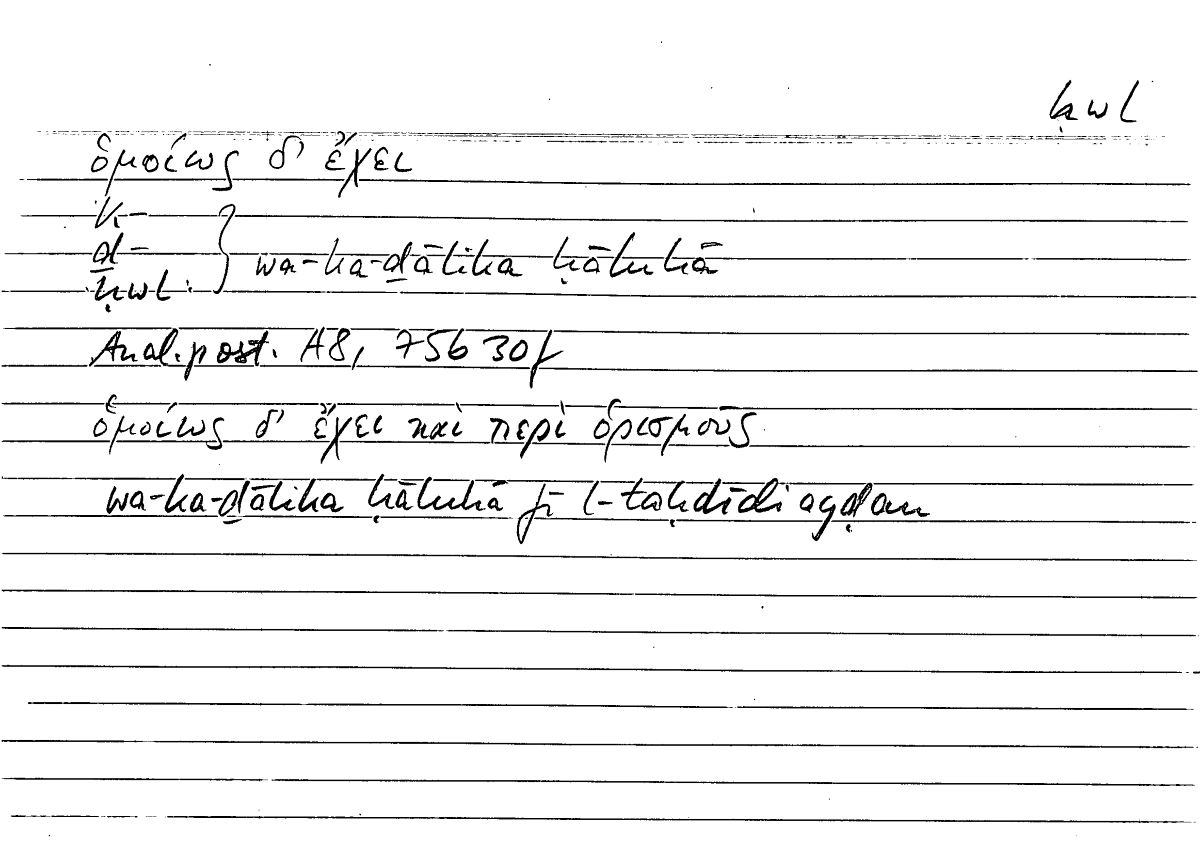 ḥwl
ὁμοίως δ' ἔχει
k-
ḏ-
ḥwl.
wa-ka-ḏālika ḥāluhā
Anal. post. A8, 75b30f
ὁμοίως δ' ἔχει καὶ περὶ ὁρισμούς
wa-ka-ḏālika ḥāluhā fī l-taḥdīdi ayḍan